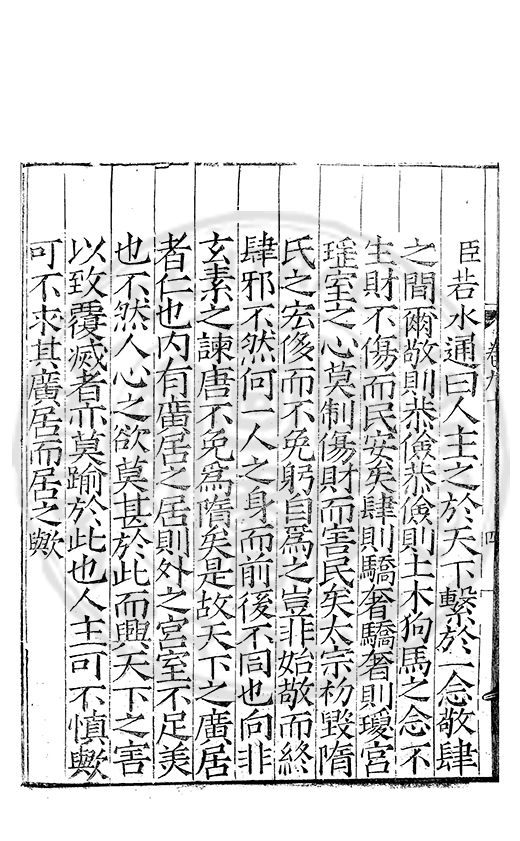 臣若水通曰人主之於天下繫於一念敬肆
之間爾敬則恭儉恭儉則土木狗馬之念不
生財不傷而民安矣肆則驕奢驕奢則瓊宮
瑤室之心莫制傷財而害民矣太宗初毀隋
氏之宏侈而不免躬自爲之豈非始敬而終
肆邪不然何一人之身而前後不同也向非
玄素之諫唐不免爲隋矣是故天下之廣居
者仁也内有廣居之居則外之宮室不足美
也不然人心之欲莫甚於此而興天下之害
以致覆滅者亦莫踰於此也人主可不慎歟
可不求其廣居而居之歟
卷九
四